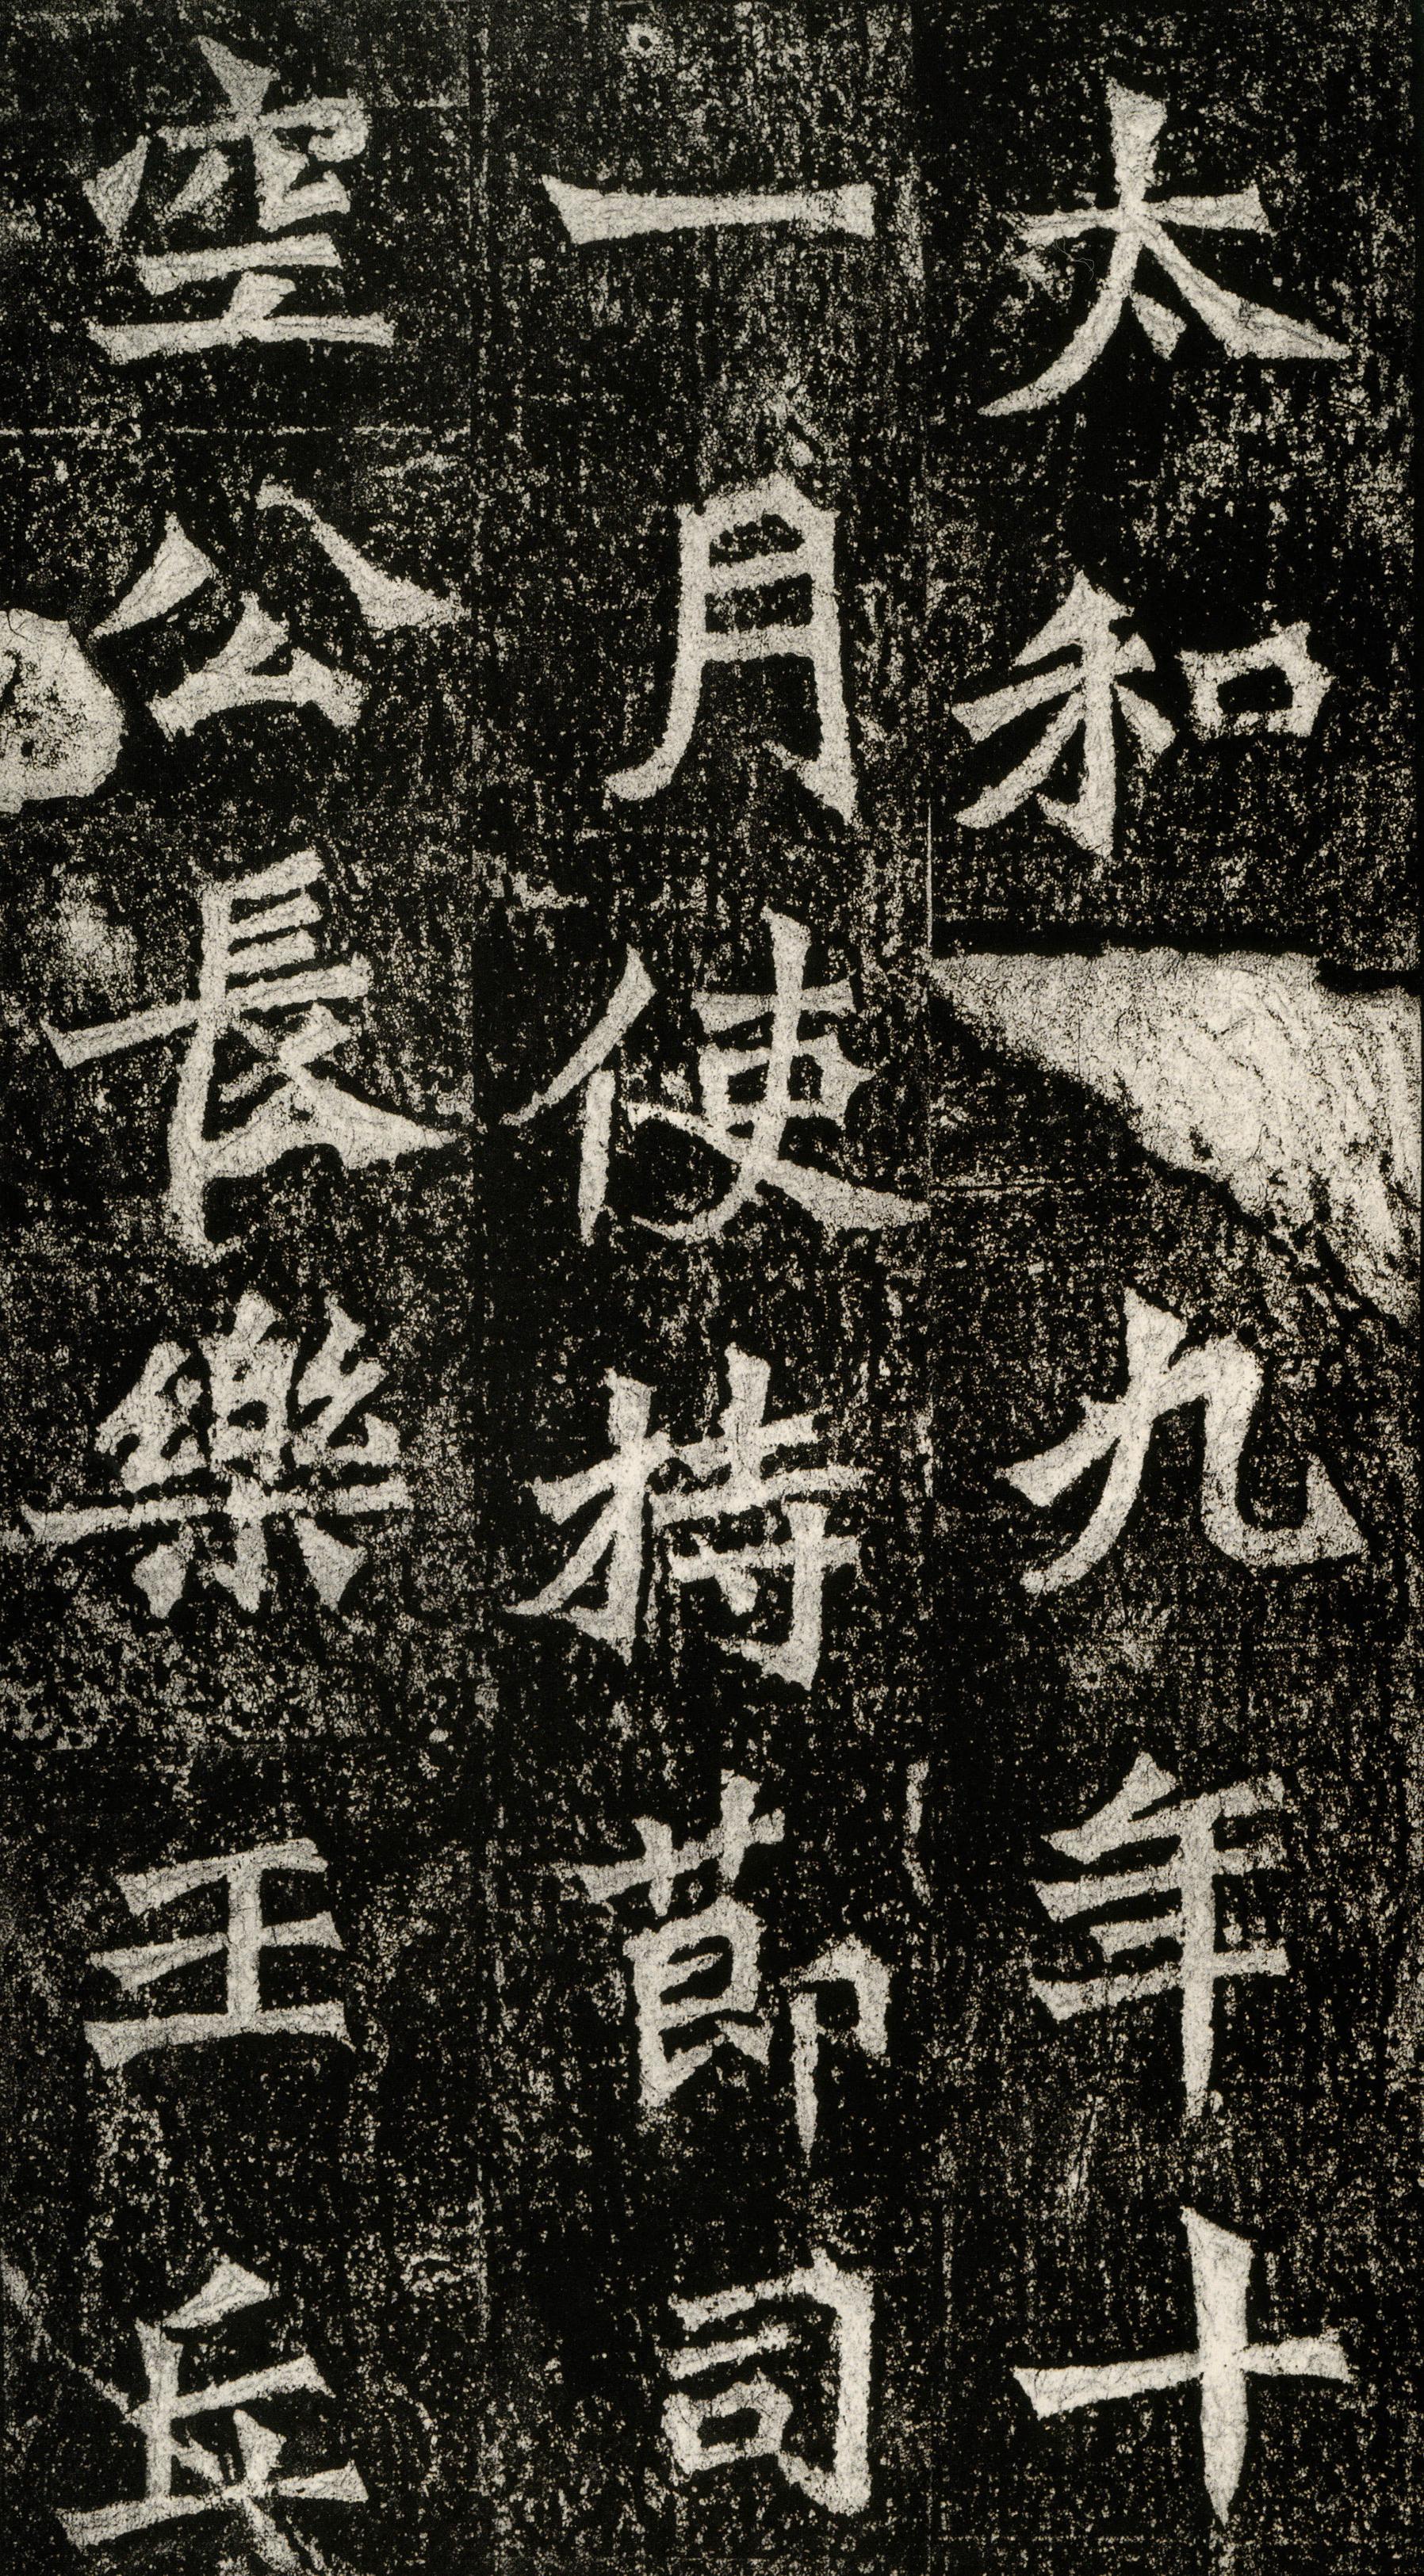 太和九年十
一月使持莭司
空公長樂王丘